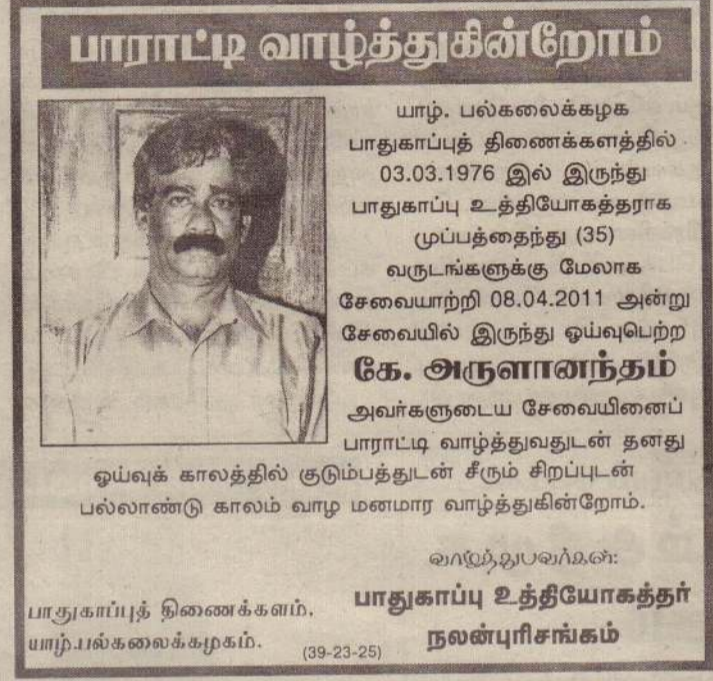 பாராட்டி வாழ்த்துகின்றோம்
யாழ். பல்கலைக்கழக
பாதுகாப்புத் திணைக்களத்தில்
03.03.1976 இல் இருந்து
பாதுகாப்பு உத்தியோகத்தராக
முப்பத்தைந்து (35)
வருடங்களுக்கு மேலாக
சேவையாற்றி 08.04.2011 அன்று
சேவையில் இருந்து ஓய்வுபெற்ற
கே. அருளானந்தம்
அவர்களுடைய சேவையினைப்
பாராட்டி வாழ்த்துவதுடன் தனது
ஓய்வுக் காலத்தில் குடும்பத்துடன் சீரும் சிறப்புடன்
பல்லாண்டு காலம் வாழ மனமார வாழ்த்துகின்றோம்.
வாழ்த்துபவர்கள்:
பாதுகாப்பு உத்தியோகத்தர்
நலன்புரிசங்கம்
பாதுகாப்புத் திணைக்களம்,
யாழ்.பல்கலைக்கழகம்.
(39-23-25)